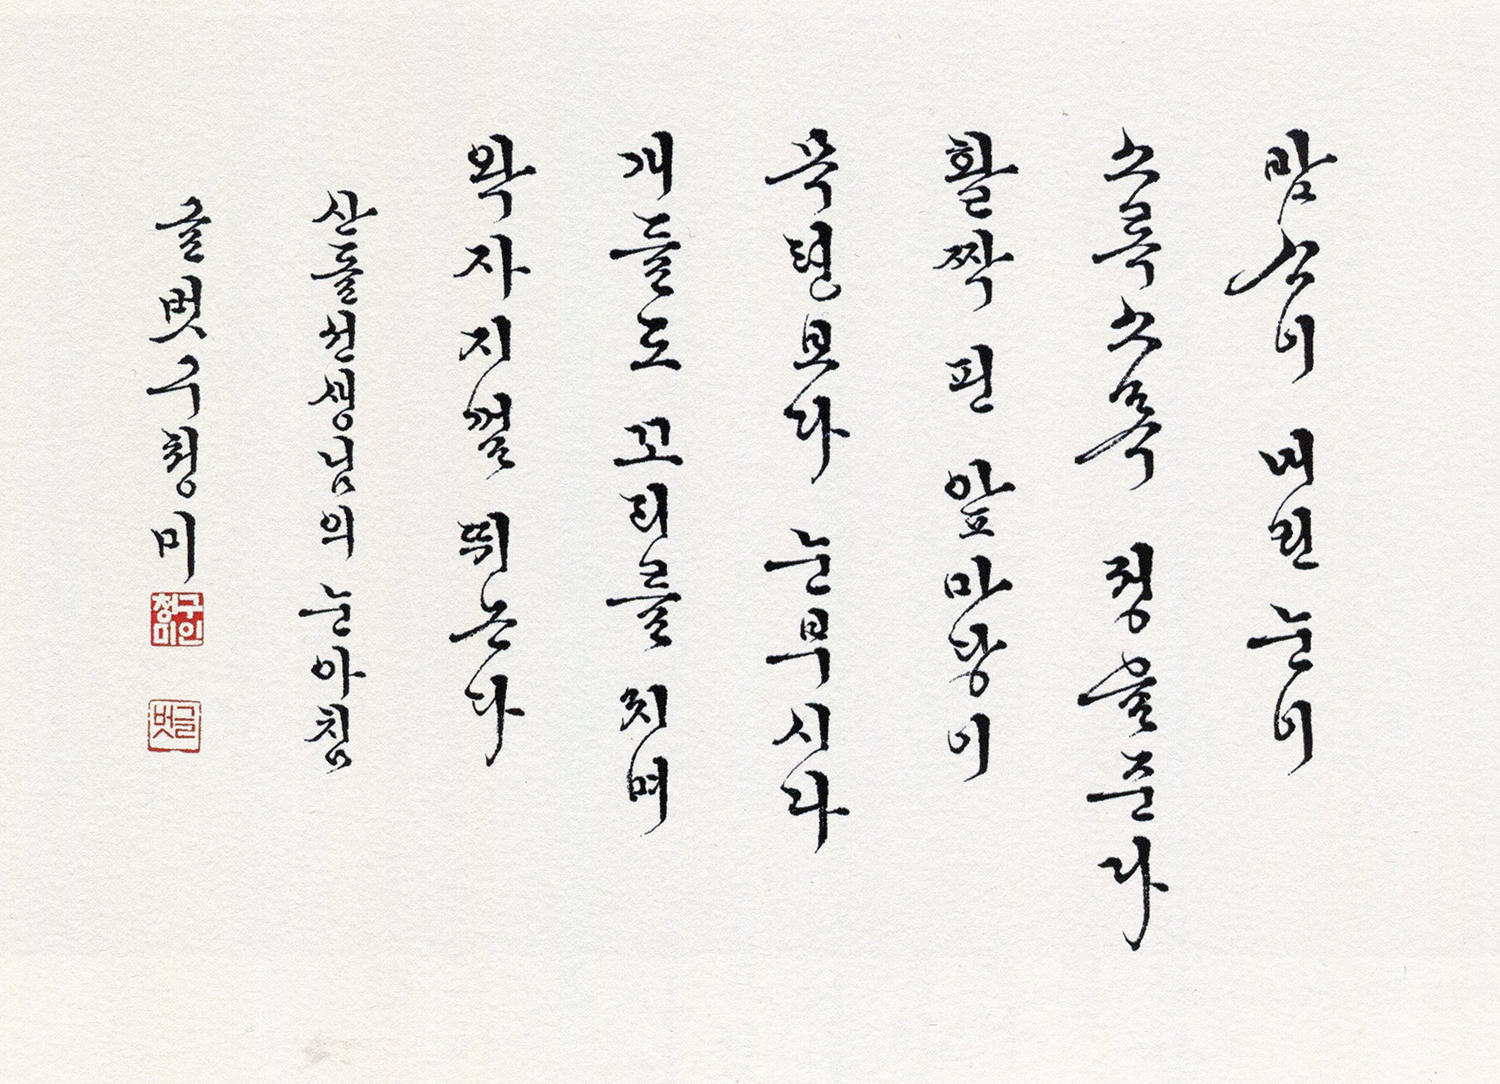 밤사이 내린 눈이
소록소록 정을준다
활짝 핀 앞마당이
목련보다 눈부시다
개들도 꼬리를 치며
왁자지껄 뛰논다
산들선생님의 눈아침
글벗구청미
구청미인
글벗